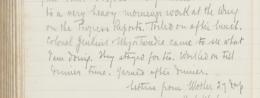 to a very heavy morning's work at the Army
on the Progress Reports. Toiled on after lunch.
Colonel Jenkins came to see what
I'm doing. They stayed for tea. Worked on till
dinner time. after dinner.
letter from Mother 27